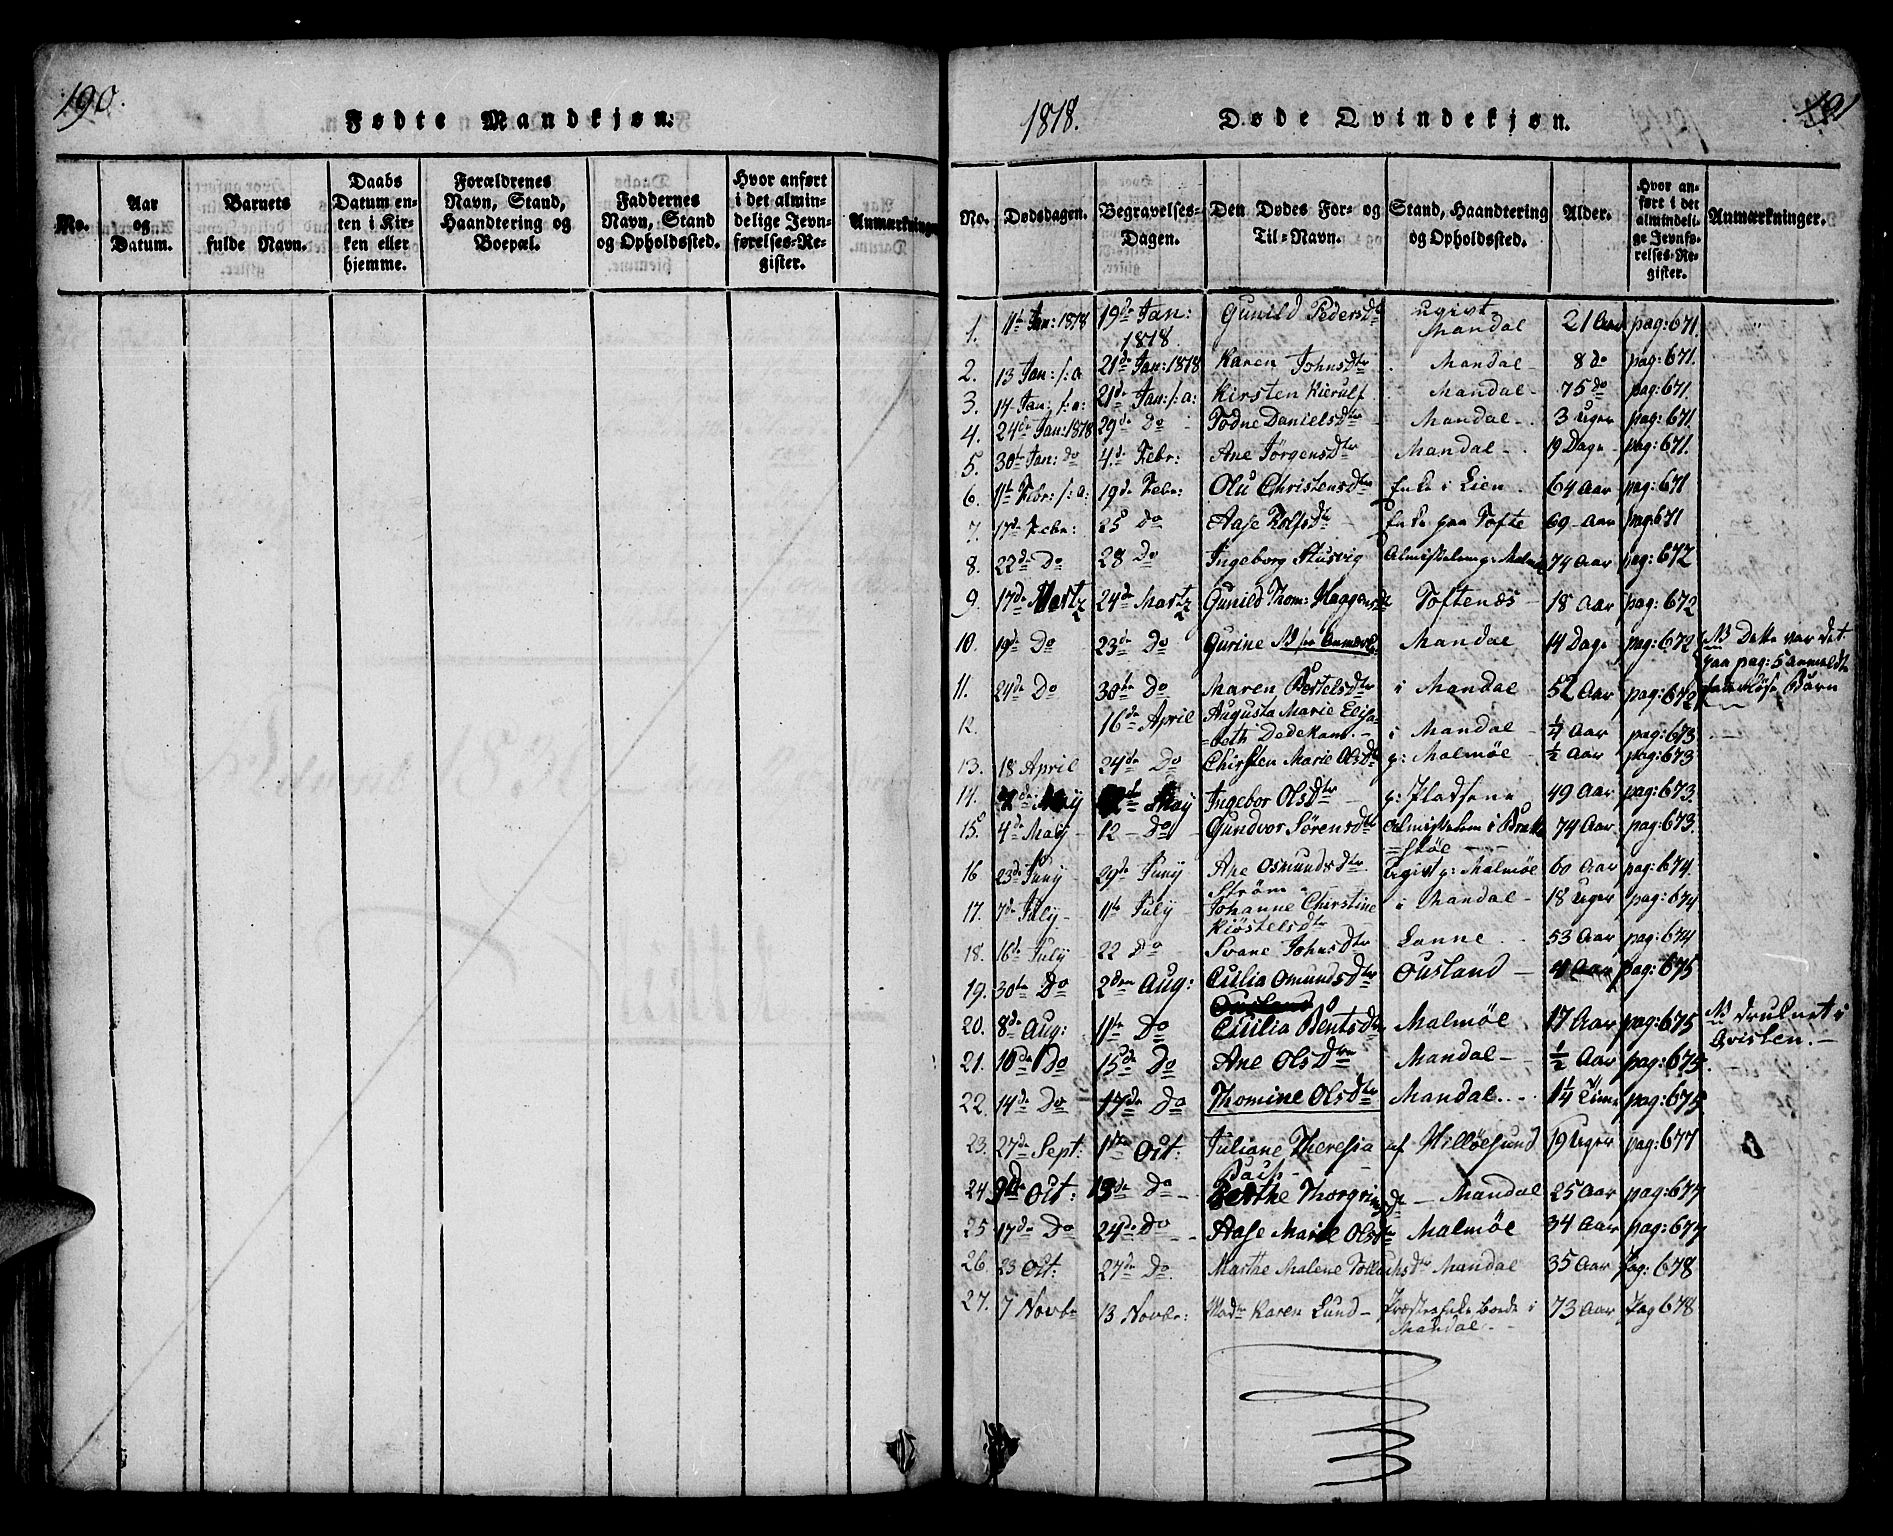 190.
Fødte Mandkjøn:
No.
Aar og Datum.
Barnets fulde Navn.
Daabs Datum enten i Kirken eller hjemme.
Forældrenes Navn, Stand, Haandtering og Boepæl.
Faddernes Navn, Stand og Opholdssted.
Hvor anført i det almindelige Jevnførelses-Register.
Anmærkninger
1818.
Døde Qvindekjøn.
191
No. Dødsdagen. Begravelses-Dagen. Den Dødes For- og Til-Navn. Stand, Haandtering og Opholdssted. Alder. Hvor anført i det almindelige Jevnførelses-Register. Anmærkninger.
1. 11te Jan: 1818 19de Jan: 1818 Gunild Pedersdtr ugivt Mandal 21 Aar pag: 671 "
2. 13 Jan: /: a 21de Jan: 1818 Karen Johnsdtr Mandal 8 do pag: 671.
3. 14 Jan: /: a: 21de Jan: /: a: Kirsten Kierulf Mandal 75 do pag: 671.
4. 24de Jan: 1818 29de Do Todne Danielsdtr Mandal 3 Uger pag: 671.
5. 30te Jan: do 4de Febr: Ane Jørgensdtr Mandal 19 Dage pag: 671.
6. 11te Febr: /: a: 19de Febr: Olu Christensdtr Enke i Lien 64 Aar pag: 671
7. 17de Febr: 25 Do Aase Rolfsdtr Enke paa Tofte 69 Aar pag: 671
8. 22de Do 28 Do Ingeborg Stusvig Almisselem p: Malmøe 74 Aar pag: 672
9. 17de Martz 24de Martz Gunild Thom: Haagensdtr Toftenæs 18 Aar pag: 672
10. 19de Do 23de Do Gurine NB see Anmærk: Mandal 14 Dage pag: 672 NB Dette var det paa pag: 5 anmeldte Børn
11. 24de Do 30te Do Maren Bertelsdtr i Mandal 52 Aar pag: 672
12. 16de April Augusta Marie Elisabeth Dedekam. i Mandal ¼ Aar pag: 673
13. 18 April 24de Do Chirsten Marie Olsdtr p: Malmøe ½ Aar pag: 673
14. May May Ingebor Olsdtr p: Pladsene 49 Aar pag: 673.
15. 4de May 12 Do Gundvor Sørensdtr Almisselem i Brattestøe 74 Aar pag: 673.
16 23de Juny 29de Juny Ane Osmundsdtr Strøm Ugivt p: Malmøe 60 Aar pag: 674.
17. 7de July 11te July Johanne Chirstine Kiøstelsdtr i Mandal 18 Uger pag: 674
18. 16de July 22 Do Svane Johnsdtr Lanne 53 Aar pag: 674
19. 30te Do 2den Aug: Cicilia Omundsdtr Ousland 4 Aar pag: 675
20. 8de Aug: 11te Do Cicilia Bentsdtr Malmøe 17 Aar pag: 675 NB druknet i Qvislen.
21. 10de Do 15de Do Ane Olsdtr Mandal ½ Aar pag: 675
22. 14de Do 17de Do Thomine Olsdtr Mandal 1¼ Time pag: 675
23. 27de Sept: 1ste Oct: Juliane Theresia Bach af Hilløesund 19 Uger pag: 677
24. 9de Oct: 13de Do Berthe Thorgrimsdtr Mandal 25 Aar pag: 677
25 17de Do 24de Do Aase Marie Olsdtr Malmøe 34 Aar pag: 677
26. 23 Oct: 27de Do Marthe Malene Tollachsdtr Mandal 35 Aar Pag: 678
27. 7 Novbr 13 Novbr: Madme Karen Lund Præsteenke boede i Mandal 73 Aar Pag 678